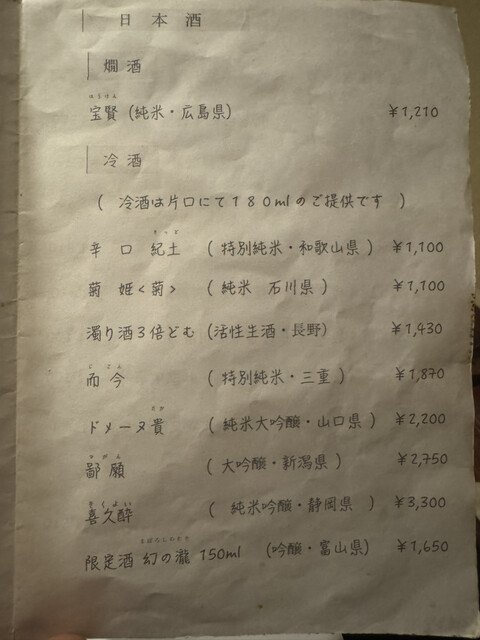 日本酒
燗酒
ほうけん
宝賢(純米・広島県) ¥1,210
冷酒
( 冷酒は片口にて180mlのご提供です )
きっど
辛口 紀土 (特別純米・和歌山県) ¥1,100
菊姫<菊> (純米 石川県) ¥1,100
濁り酒3倍どむ(活性生酒・長野) ¥1,430
じこん
而今 (特別純米・三重) ¥1,870
たか
ドメーヌ貴 (純米大吟醸・山口県) ¥2,200
つがん
鄙願 (大吟醸・新潟県) ¥2,750
きくよい
喜久酔 (純米吟醸・静岡県) ¥3,300
まぼろしのたき
限定酒 幻の瀧 150ml (吟醸・富山県) ¥1,650